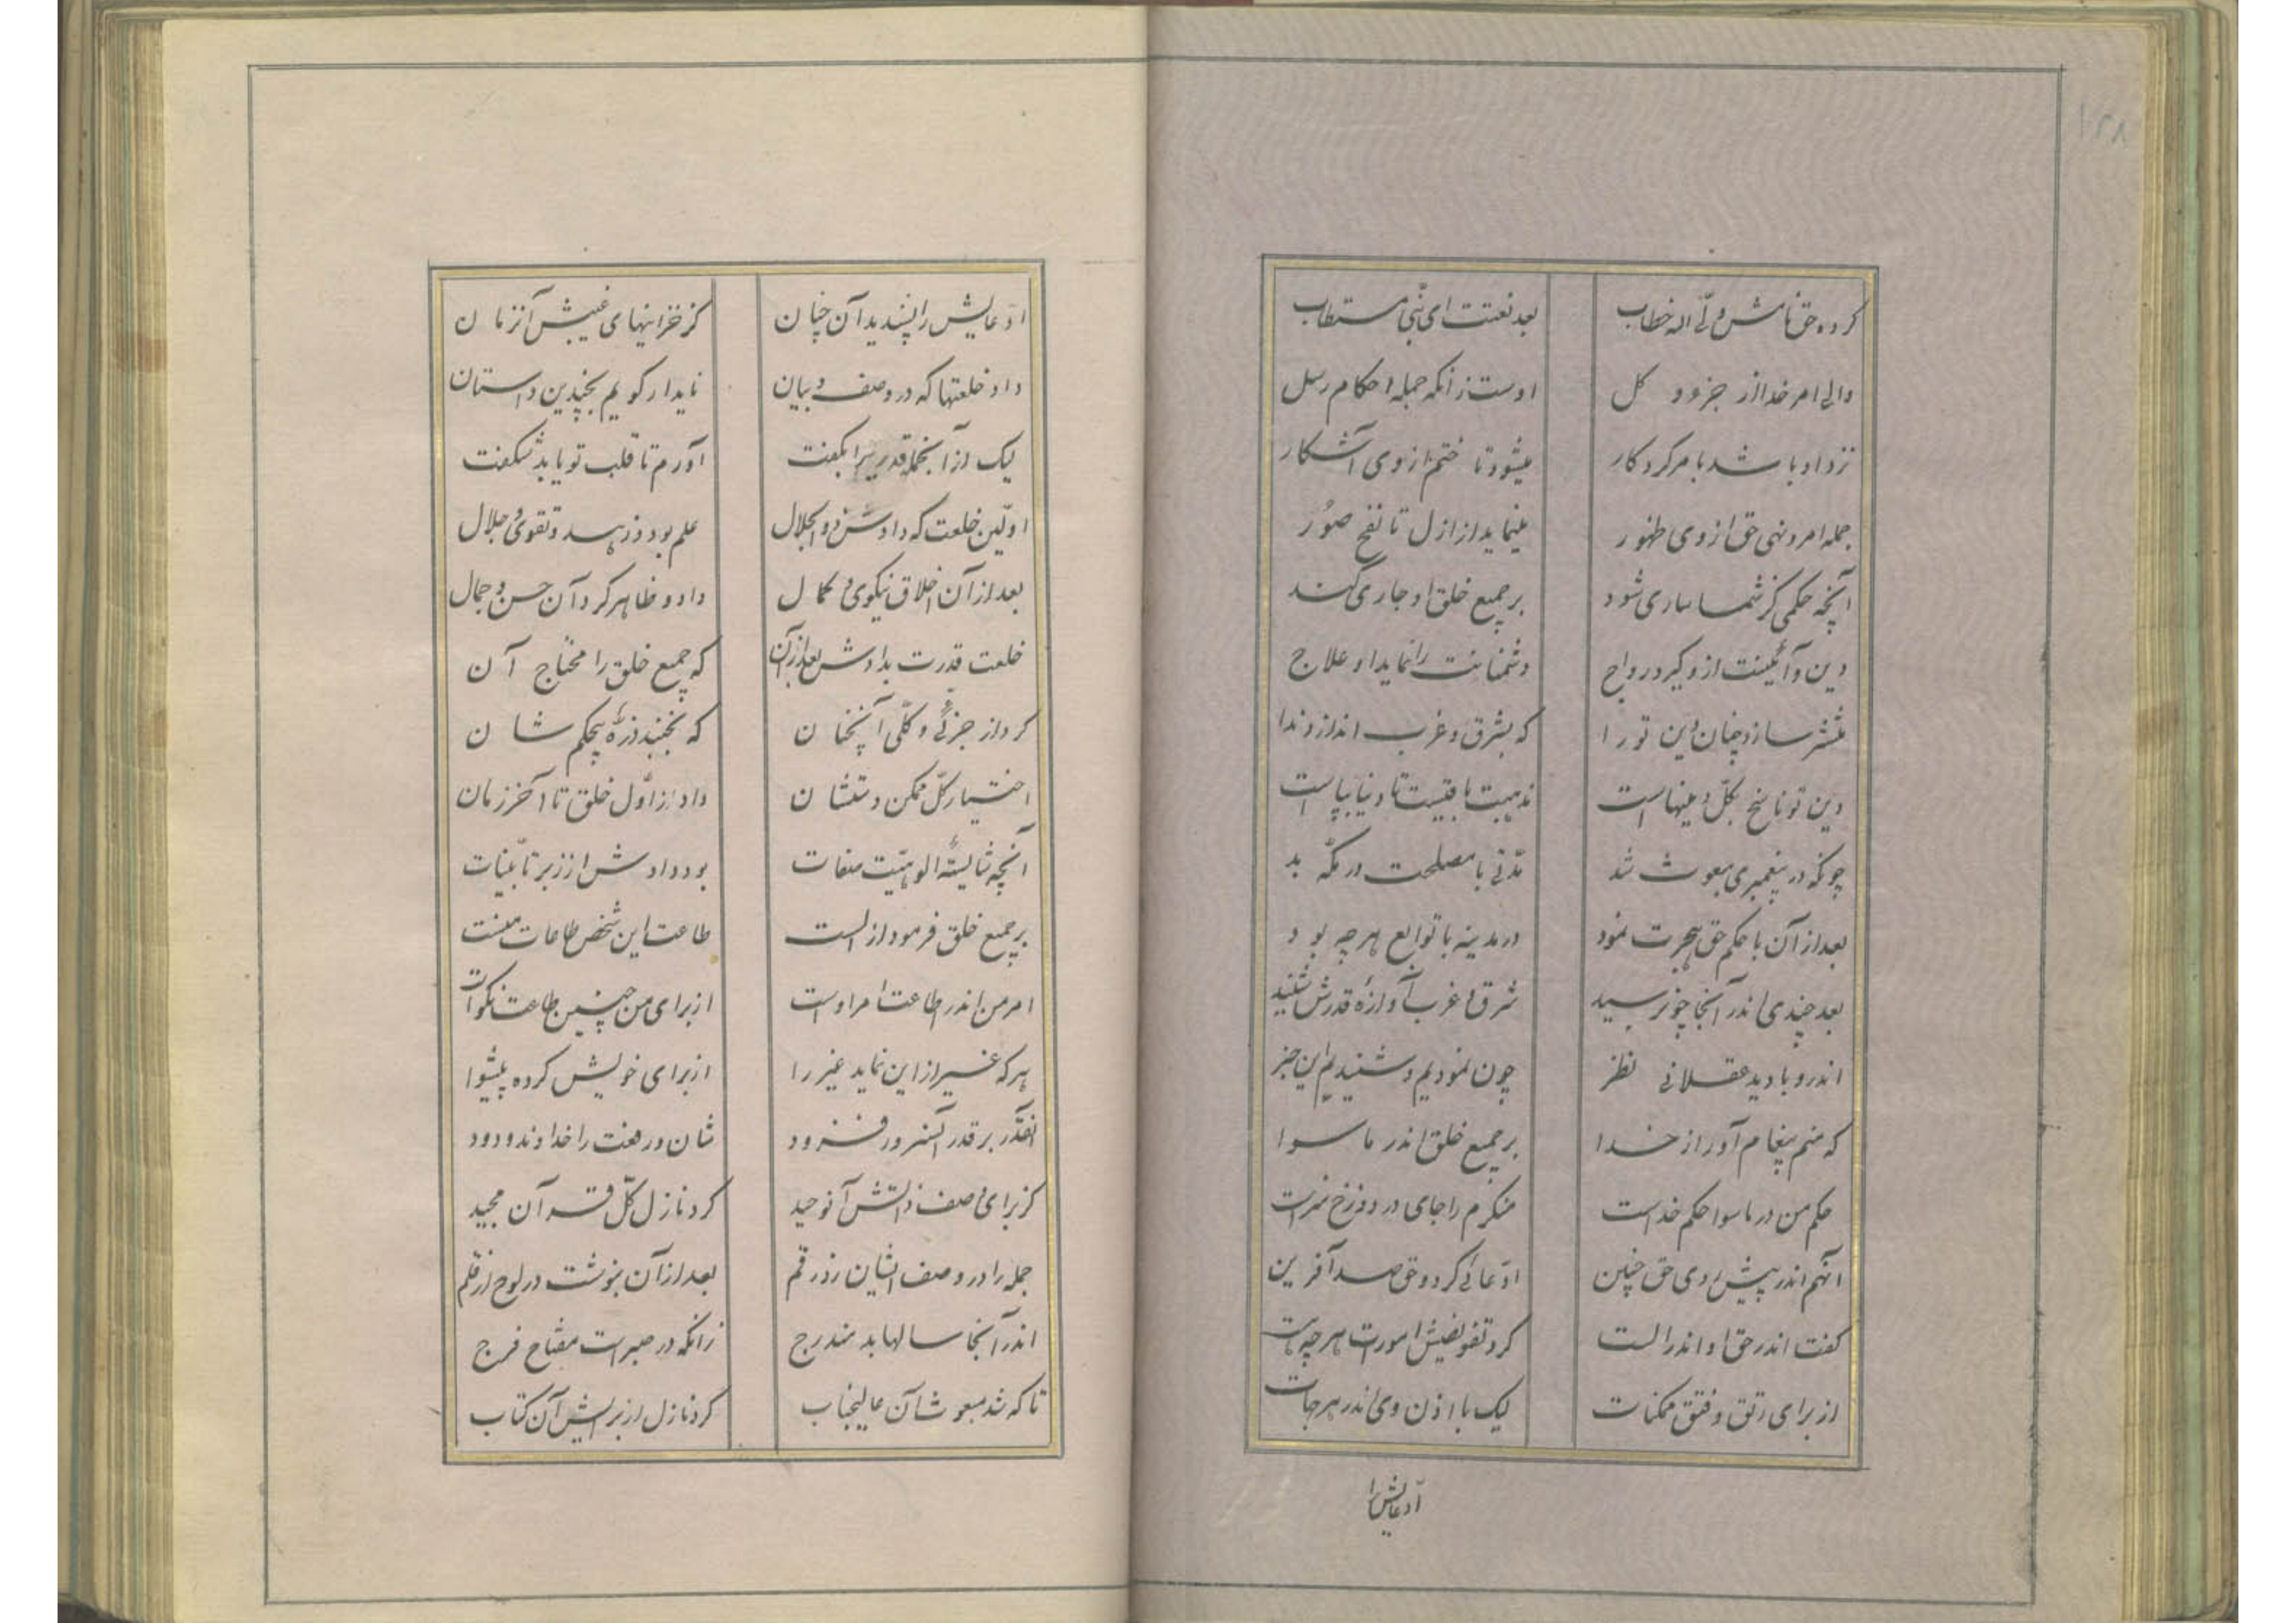 ۱۲۸
کرده حق نامش ولی اله خطاب بعد نعتت ای نبی مستطاب
والی امر خدا از جزو و کل اوست زانکه جمله احکام رسل
نزد او باشد بامر کردکار میشود تا ختم از وی آشکار
جمله امر و نهی حق از وی ظهور مینماید از ازل تا نفخ صور
آنچه حکمی کز شما ساری شود بر جمیع خلق او جاری کند
دین و آئینت از و گیرد رواج دشمنانت را نماید او علاج
منتشر سازد چنان دین تو را که بشرق و غرب اندازد ندا
دین تو ناسخ بکل دینهاست مذهبت باقیست تا دنیا بپاست
چونکه در پیغمبری مبعوث شد مدتی با مصلحت در مکه بد
بعد از آن با حکم حق هجرت نمود در مدینه با توابع هرچه بود
بعد چندی اندر آنجا چون رسید شرق و غرب آوازهٔ قدرش شنید
اندرو با دید عقلانی نظر چون نمودیم و شنیدیم این خبر
که منم پیغام آور از خدا بر جمیع خلق اندر ماسوا
حکم من در ماسوا حکم خداست منکرم را جای در دوزخ سزاست
آنهم اندر پیش روی حق چنین ادعائی کرد و حق صد آفرین
گفت اندر حق او اندر الست کرد تفویضش امورات هرچه هست
از برای رتق و فتق ممکنات لیک با اذن وی اندر هر جهات
ادعایش را
ادعایش را پسندید آن چنان کز خزاینهای غیبش آنزمان
داد خلعتها که در وصف و بیان ناید ار گویم بچندین داستان
لیک از آنجمله قدریرا بگفت آورم تا قلب تو یابد شگفت
اولین خلعت که دادش ذوالجلال علم بود و زهد و تقوی و جلال
بعد از آن اخلاق نیکوی و کمال داد و ظاهر کرد آن حسن و جمال
خلعت قدرت بدادش بعد از آن که جمیع خلق را محتاج آن
کرد از جزئی و کلی آنچنان که نجنبد ذرهٔ بیحکم شان
اختیار کل ممکن دستشان داد از اول خلق تا آخر زمان
آنچه شایستهٔ الوهیت صفات بود دادش از زبر تا بینات
بر جمیع خلق فرمود از الست طاعت این شخص طاعات منست
امر من اندر اطاعت امر اوست از برای من چنین طاعت نکوست
هر که غیر از این نماید غیر را از برای خویش کرده پیشوا
آنقدر بر قدر آنسرور فزود شان و رفعت را خداوند ودود
کز برای وصف ذاتش آنوحید کرد نازل کل قرآن مجید
جمله را در وصف ایشان زد رقم بعد از آن بنوشت در لوح از قلم
اندر آنجا سالها بد مندرج زانکه در صبر است مفتاح فرج
تا که شد مبعوث آن عالیجناب کرد نازل از برایش آن کتاب